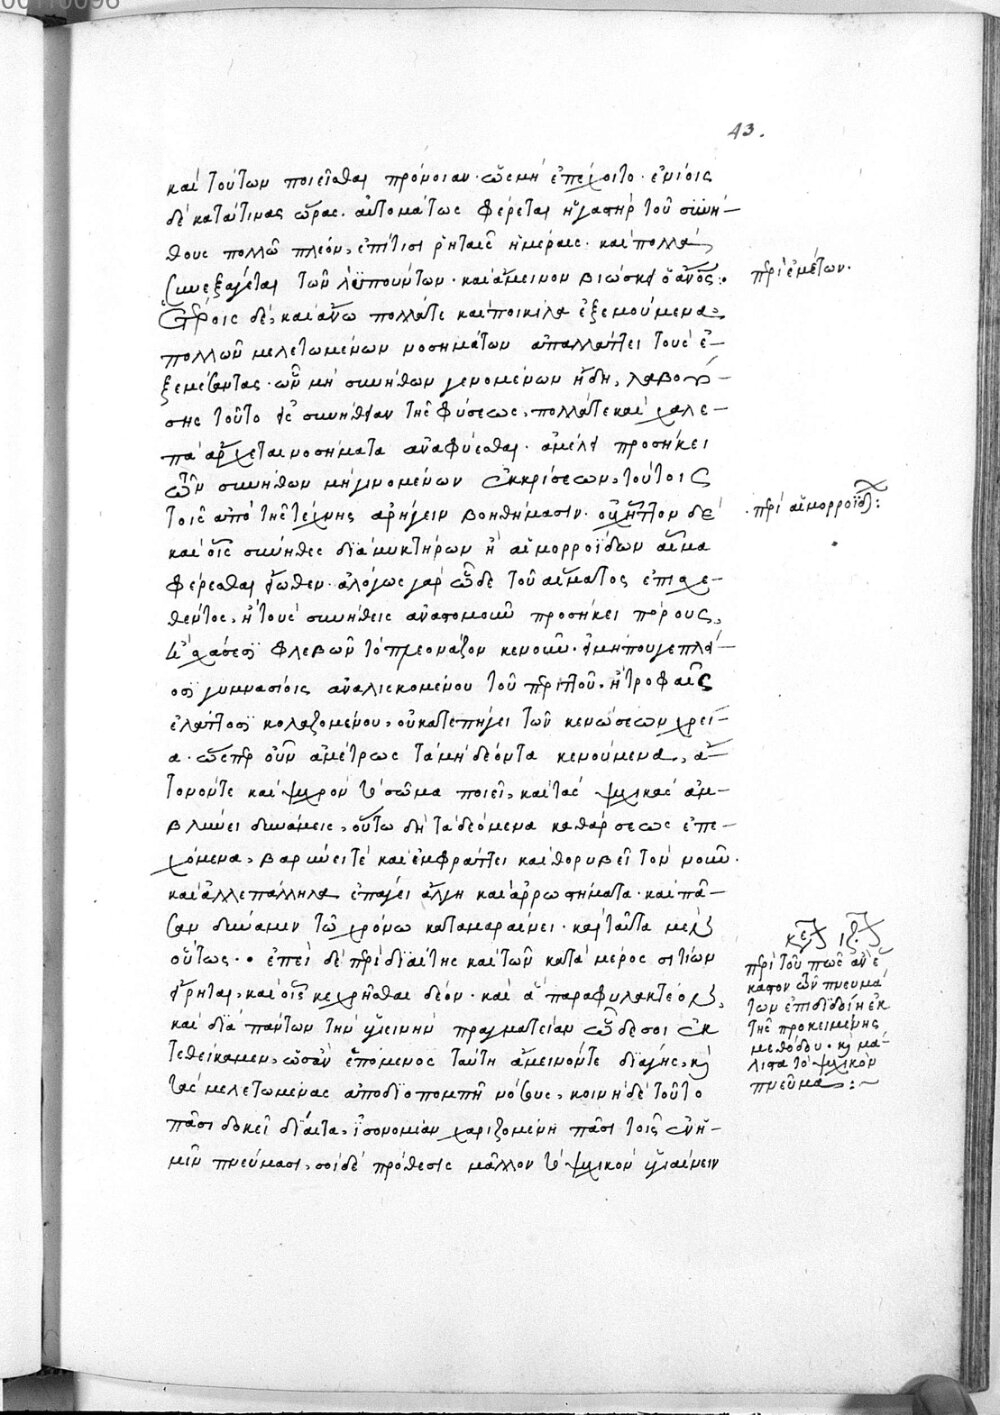 43.
καὶ τούτων ποιεῖσθαι πρόνοιαν· ὡς μὴ ἐπέχοιτο· ἐνίοις
δὲ κατά τινας ὥρας· αὐτομάτως φέρεται ἡ γαστὴρ τοῦ συνή-
θους πολλῶ πλέον, ἐπί τισι ῥηταῖς ἡμέραις· καὶ πολλὰ
συνεξαγέται τῶν λυπούντων· καὶ ἄμεινον βιώσκει ὁ ἄνος:
περὶ ἐμέτων·
Ἑτέροις δὲ, καὶ ἄνω πολλά τε καὶ ποικίλα ἐξεμούμενα,
πολλῶν μελετωμένων νοσημάτων ἀπαλλάττει τοὺς ἐ-
ξεμέσαντας· ὧν μὴ συνήθων γενομένων ἤδη, λαβού-
σης τοῦτο εἰς συνήθειαν τῆς φύσεως, πολλά τε καὶ χαλε-
πὰ ἄρχεται νοσήματα ἀναφύεσθαι· ἀμέλει προσήκει
τῶν συνήθων μὴ γινομένων ἐκκρίσεων, τούτοις
τοῖς ἀπὸ τῆς τέχνης ἀρήγειν βοηθήμασιν· οὐχ ἧττον δὲ
περὶ αἱμορροΐδ:
καὶ οἷς σύνηθες διὰ μυκτήρων ἢ αἱμορροΐδων αἷμα
φέρεσθαι ἔωθεν· ἀλόγως γὰρ ὧδε τοῦ αἵματος ἐπισχε-
θέντος, ἢ τοὺς συνήθεις ἀναστομοῦν προσήκει πόρους,
ἢ σχάσεσι φλεβῶν τὸ πλεονάζον κενοῦν· εἰ μήπου γε πλεί-
οσι γυμνασίοις ἀναλισκομένου τοῦ περιττοῦ, ἢ τροφαῖς
ἐλάττοσι κολαζομένου, οὐ κατεπήγει τῶν κενώσεων χρεί-
α· ὥσπερ οὖν ἀμέτρως τὰ μὴ δέοντα κενούμενα, ἄ-
τονόν τε καὶ ψυχρὸν τὸ σῶμα ποιεῖ, καὶ τὰς ψυχικὰς ἀμ-
βλύνει δυνάμεις, οὕτω δὴ τὰ δεόμενα καθάρσεως ἐπε-
χόμενα, βαρύνει τὲ καὶ ἐμφράττει καὶ θορυβεῖ τὸν νοῦν·
καὶ ἀλλεπάλληλα ἐπάγει ἄλγη καὶ ἀρρωστήματα· καὶ πᾶ-
σαν δύναμιν τῷ χρόνω καταμαραίνει· καὶ ταῦτα μὲν
οὕτως·· ἐπεὶ δὲ περὶ διαίτης καὶ τῶν κατὰ μέρος σιτίων
εἴρηται, καὶ οἷς κεχρῆσθαι δέον· καὶ ἃ παραφυλακτέον,
καὶ διὰ πάντων τὴν ὑγιεινὴν πραγματείαν ὧδέ σοι ἐκ
τεθείκαμεν, ὡς ἂν ἑπόμενος ταύτη ἄμεινόν τε διάγῃς, κὶ
τὰς μελετωμένας ἀποδιοπομπῇ νόσους, κοινὴ δὲ τοῦτο
πᾶσι δοκεῖ δίαιτα, ἰσονομίαν χαριζομένη πᾶσι τοῖς ἐν ἡ-
μῖν πνεύμασι, σοὶ δὲ πρόθεσις μᾶλλον τὸ ψυχικὸν ὑγιαίνειν
περὶ τοῦ πῶς ἂν ἕ
καστον τῶν πνευμά
των ἐπιδιδοίη ἐκ
τῆς προκειμένης
μεθόδου· κὶ μά-
λιστα τὸ ψυχικὸν
πνεῦμα:~